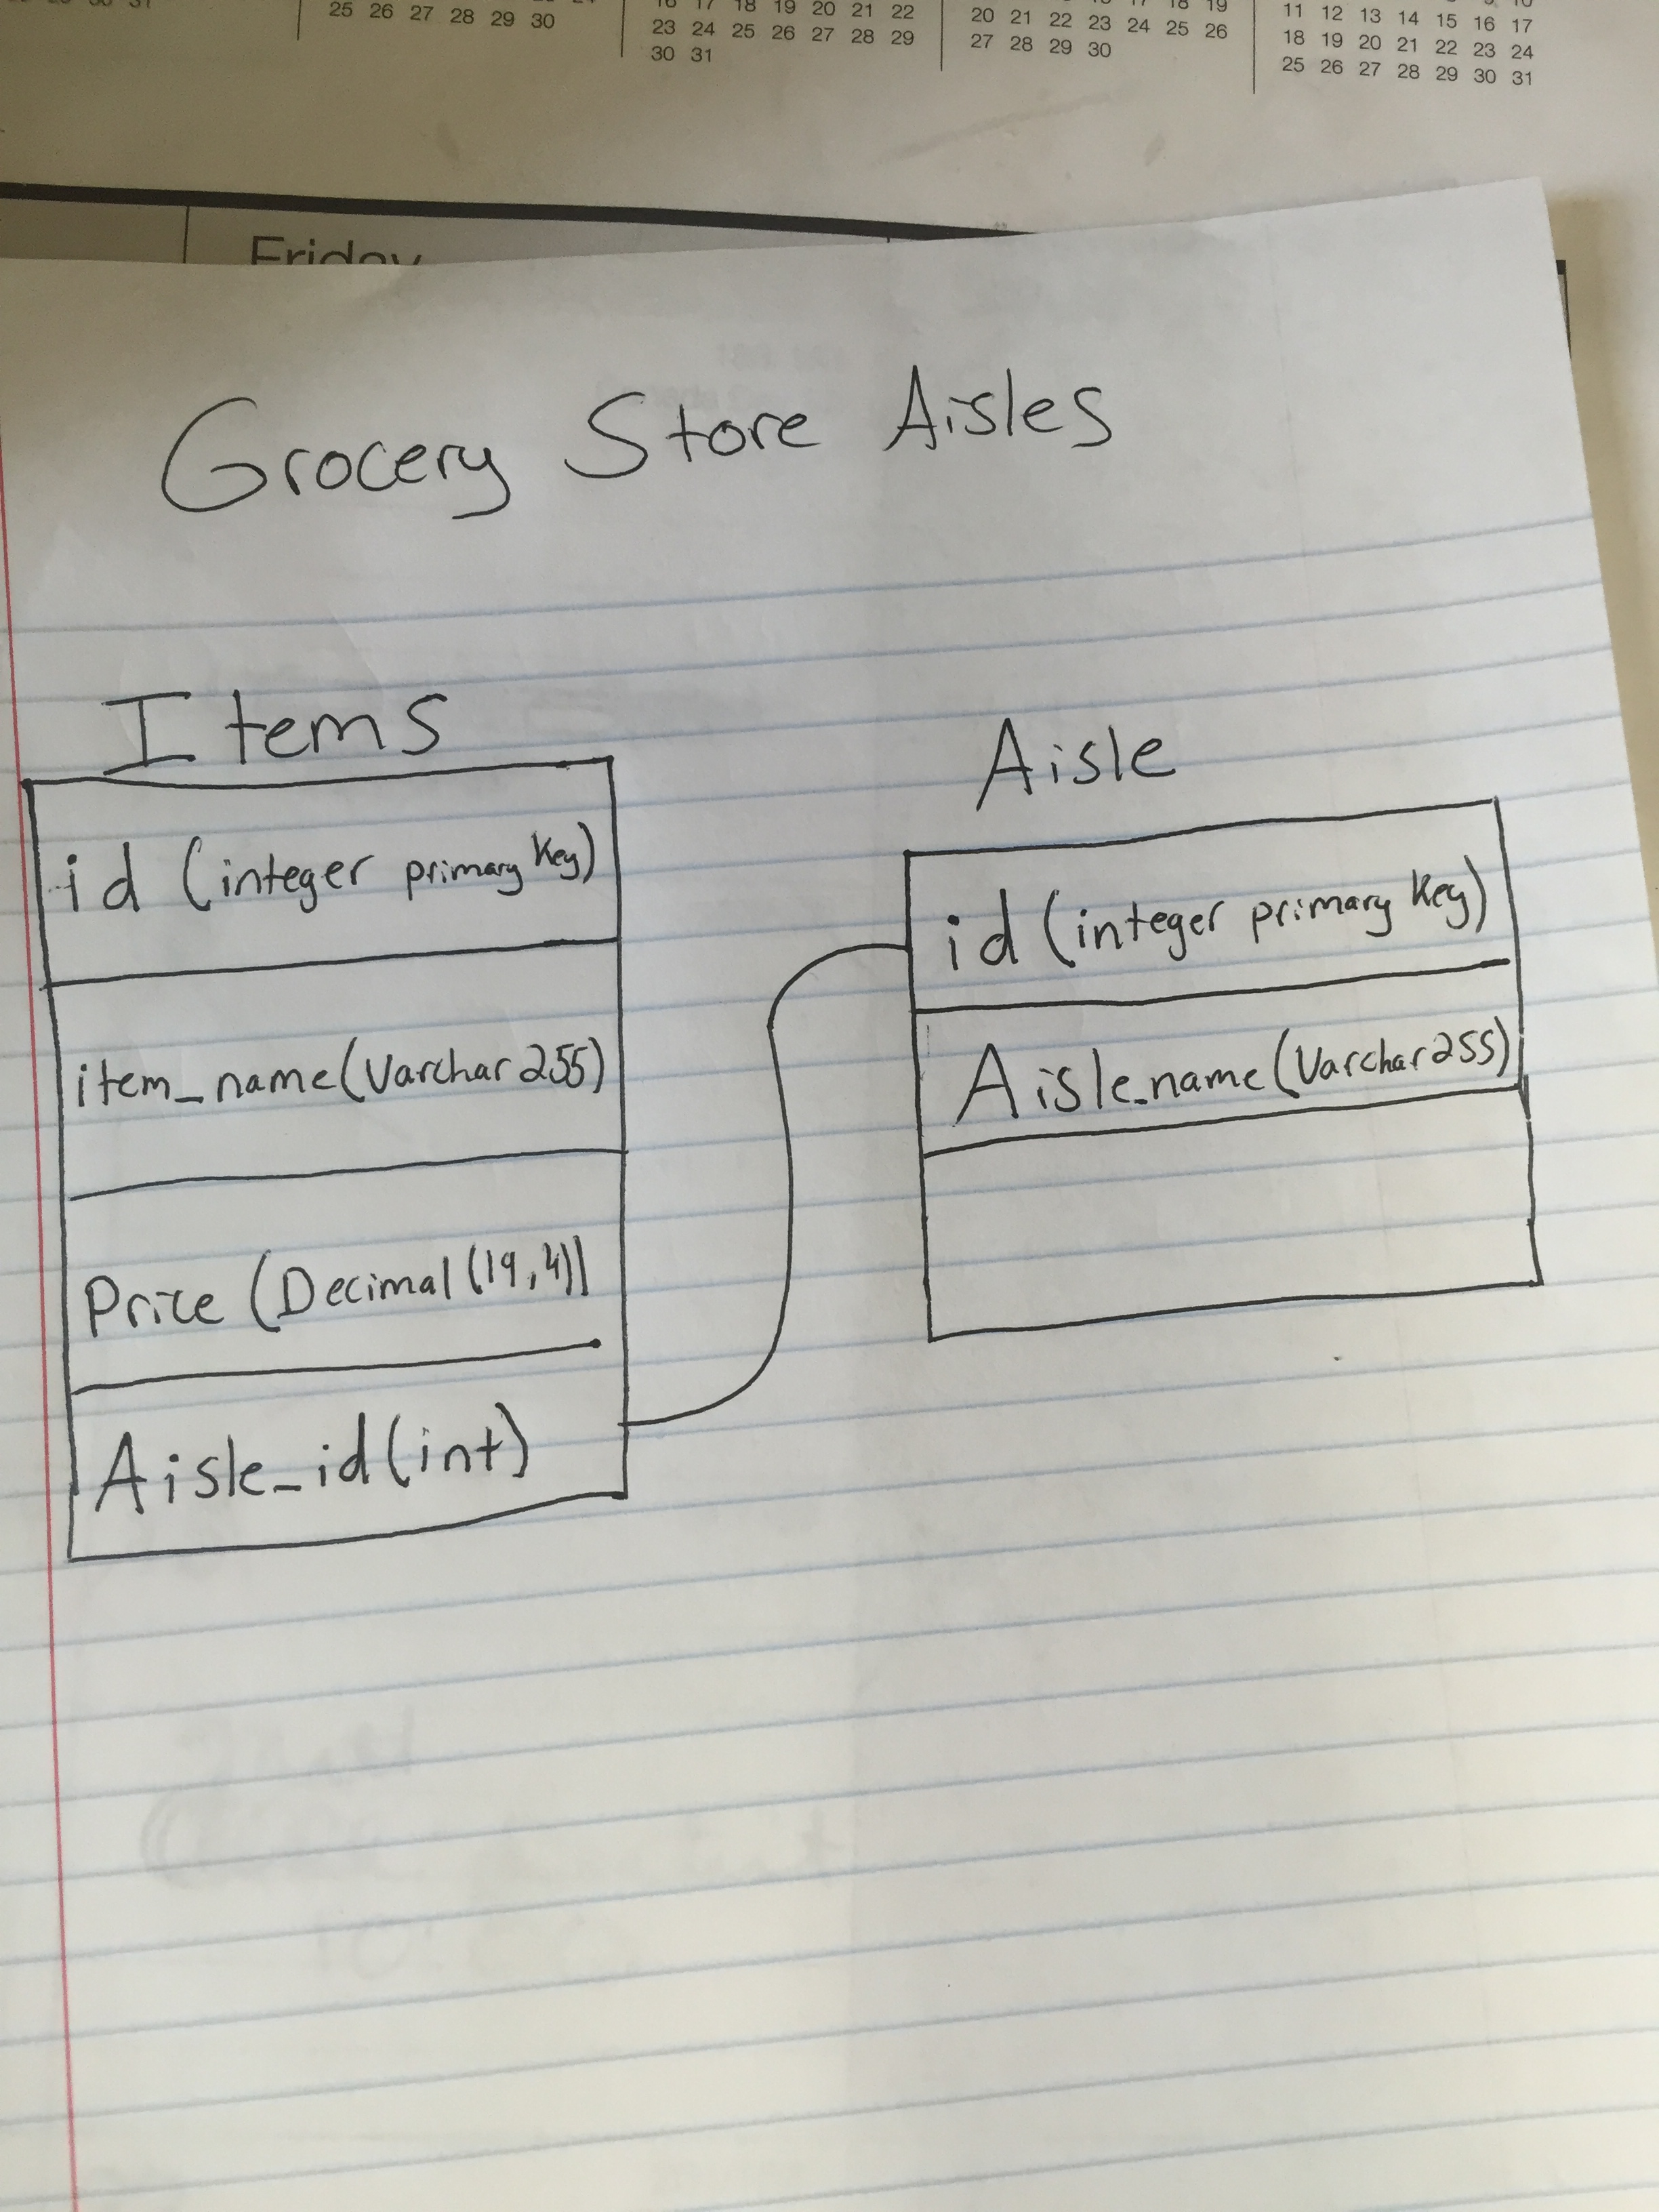 25 26 27 28 29 30
16 17 18 19 20 21 22
23 24 25 26 27 28 29
30 31
17 18 19
20 21 22 23 24 25 26
27 28 29 30
10
11 12 13 14 15 16 17
18 19 20 21 22 23 24
25 26 27 28 29 30 31
Friday
Grocery Store Aisles
Items
id (integer primary Key)
item_name (Varchar 255)
Price (Decimal (19,4))
Aisle_id (int)
Aisle
id (integer primary Key)
Aisle_name (Varchar 255)